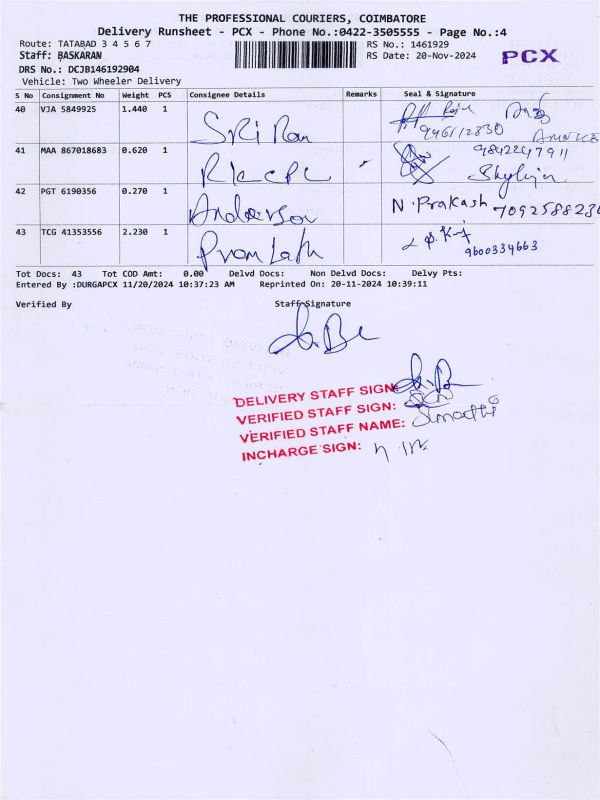 THE PROFESSIONAL COURIERS, COIMBATORE
Delivery Runsheet - PCX - Phone No.:0422-3505555 - Page No.:4
Route: TATABAD 3 4 5 6 7 RS No.: 1461929
Staff: BASKARAN RS Date: 20-Nov-2024 PCX
DRS No.: DCJB146192904
Vehicle: Two Wheeler Delivery
S No Consignment No Weight PCS Consignee Details Remarks Seal & Signature
40 VJA 5849925 1.440 1 SRi Ram
41 MAA 867018683 0.620 1 9842247911
42 PGT 6190356 0.270 1 Anderson N. Prakash
43 TCG 41353556 2.230 1 9600334663
Tot Docs: 43 Tot COD Amt: 0.00 Delvd Docs: Non Delvd Docs: Delvy Pts:
Entered By :DURGAPCX 11/20/2024 10:37:23 AM Reprinted On: 20-11-2024 10:39:11
Verified By Staff Signature
DELIVERY STAFF SIGN
VERIFIED STAFF SIGN:
VERIFIED STAFF NAME:
INCHARGE SIGN: